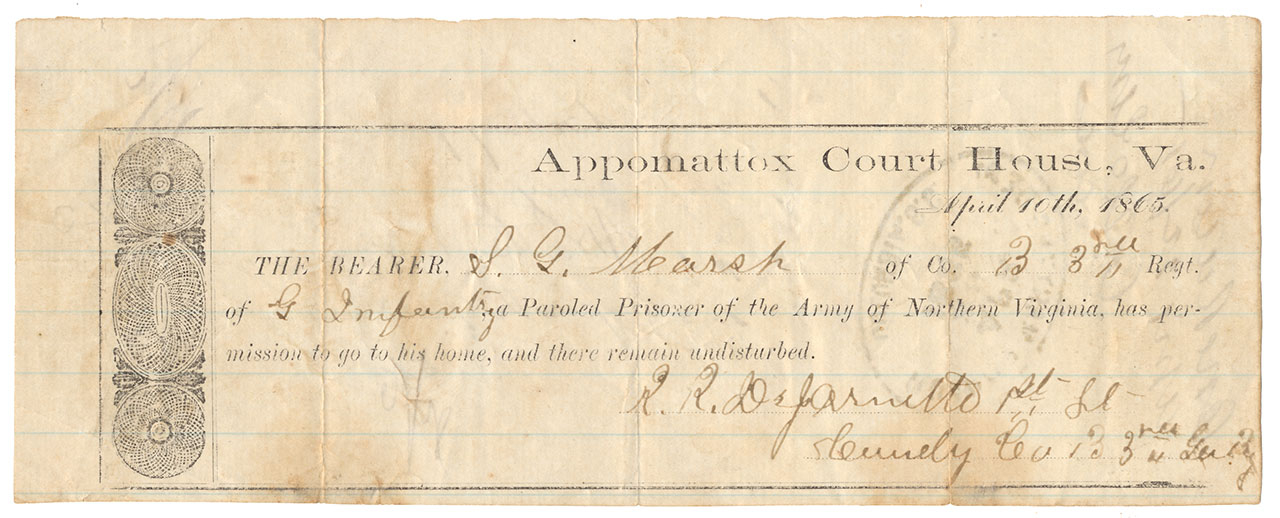 Appomattox Court House, Va.
April 10th, 1865.
THE BEARER, S. G. Marsh of Co. B 3rd Regt.
of G Infantry, a Paroled Prisoner of the Army of Northern Virginia, has per-
mission to go to his home, and there remain undisturbed.
R. R. DeJarnette 1st Lt
Co B 3rd Ga